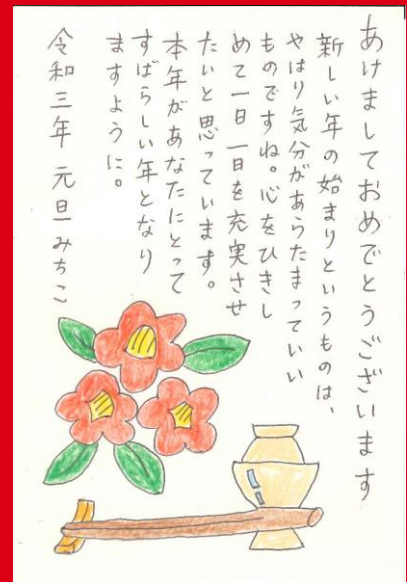 あけましておめでとうございます
新しい年の始まりというものは、
やはり気分があらたまっていい
ものですね。心をひきし
めて一日一日を充実させ
たいと思っています。
本年があなたにとって
すばらしい年となり
ますように。
令和三年 元旦 みちこ